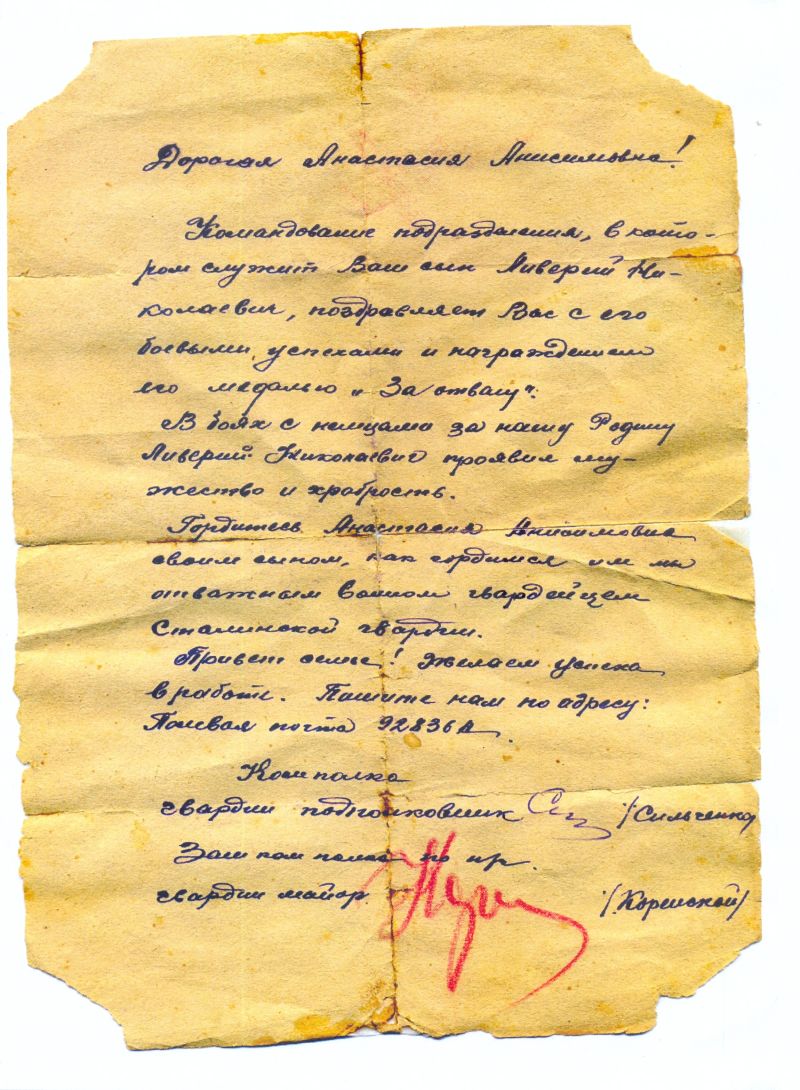 Дорогая Анастасия Анисимовна!
Командование подразделения, в кото-
ром служит Ваш сын Ливерий Ни-
колаевич, поздравляет Вас с его
боевыми успехами и награждением
его медалью „За отвагу".
В боях с немцами за нашу Родину
Ливерий Николаевич проявил му-
жество и храбрость.
Гордитесь Анастасия Анисимовна
своим сыном, как гордимся им мы
отважным воином гвардейцем
Сталинской гвардии.
Привет семье! Желаем успеха
в работе. Пишите нам по адресу:
Полевая почта 92836А.
Ком полка
гвардии подполковник /Сильченко/
Зам ком полка по
гвардии майор /